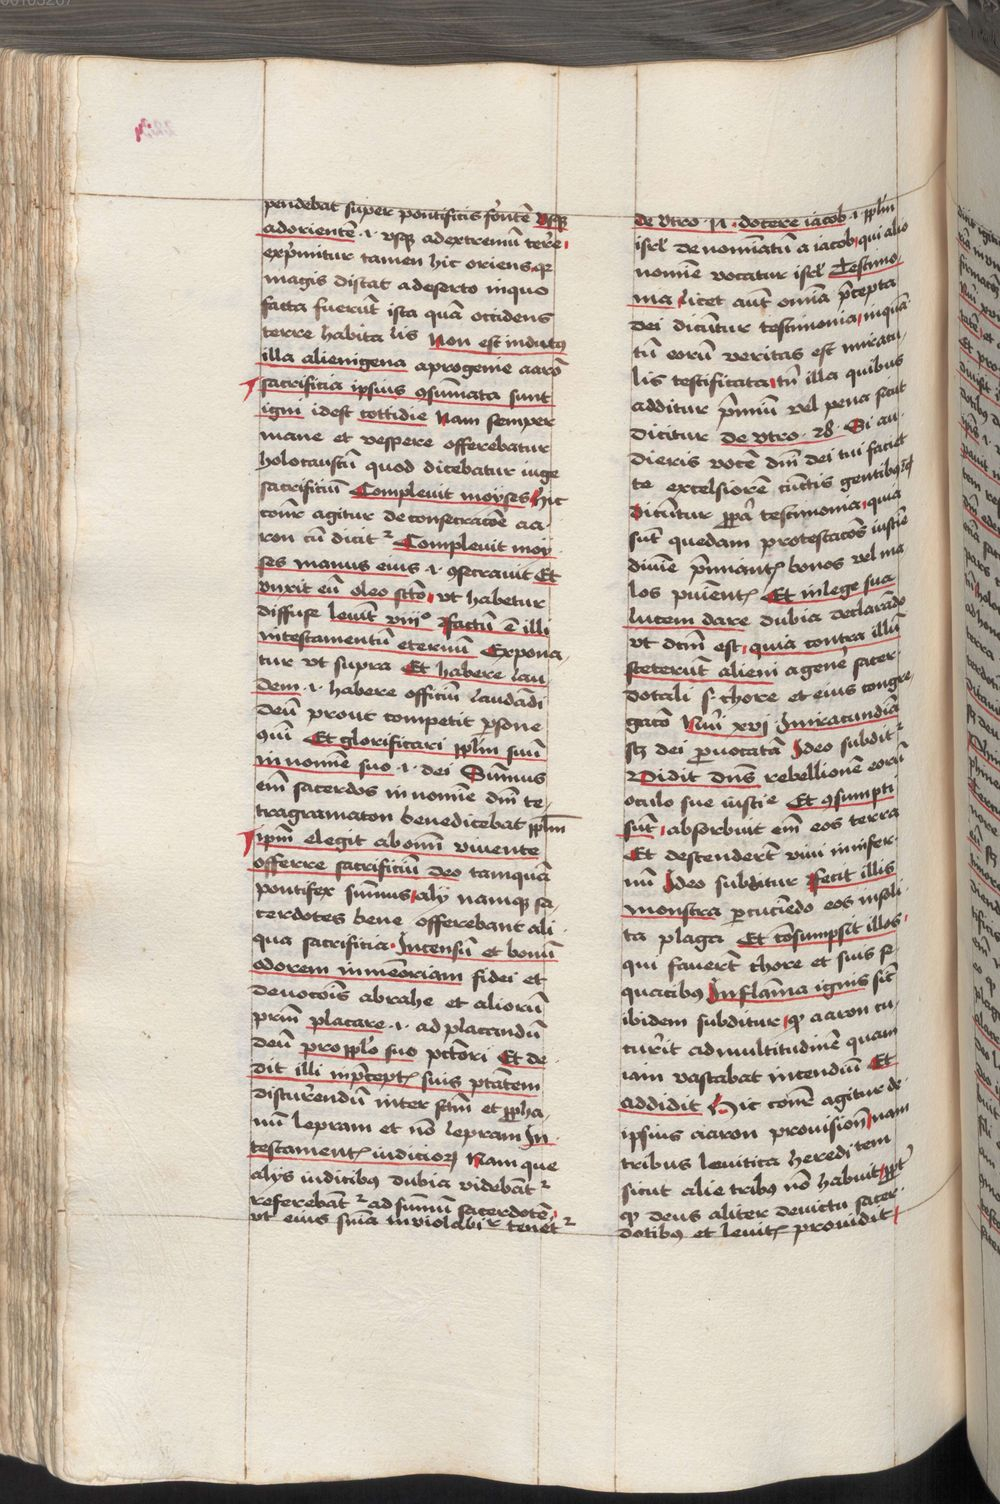 pendebat super pontificis frontē vsqꝫ
ad orientē .i. vsqꝫ ad extremū terre
exprimitur tamen hic oriens qꝛ
magis distat a deserto in quo
facta fuerūt ista quā occidens
terre habitalis Non est indutꝰ
illa alienigena a progenie aarō
sacrificia ipsius ꝯsūmata sunt
igni idest cottidie Nam semper
mane et vespere offerebatur
holocaustū quod dicebatur iuge
sacrificiū Compleuit moyses hic
cōnr agitur de consecracōe aa
ron cū dicitᷣ Compleuit moy
ses manus eius .i. ꝯsecrauit Et
vnxit eū oleo scto vt habetur
diffuse leuit viijº factū ē illi
in testamentū eternū Expona
tur vt supra Et habere lau
dem .i. habere officiū laudādi
deū prout competit ꝑsone
qui Et glorificari pplm suū
in nomīe suo .i. dei Sūmus
em̄ sacerdos in nomīe dm̄ te
tragramaton benedicebat pplm
ipm̄ elegit ab omī viuente
offerre sacrificiū deo tamquā
pontifex sūmus alij namqꝫ sa
cerdotes bene offerebant ali
qua sacrificia Incensū et bonū
odorem in memoriam fidei et
deuocōis abrahe et aliorū
prm̄ placare .i. ad placandū
deū pro pplo suo pctōri Et de
dit illi in p̄ceptꝭ suis ptātem
discernendū inter sctm̄ et ppha
nū lepram et nō lepram In
testamentꝭ iudiciorꝫ Nam que
alijs iudicibꝰ dubia videbātᷣ
referebātᷣ ad sūmū sacerdotē
vt eius snīa inviolabilʳ tenetᷣ
de vtro 17 docere iacob .i. pplm
isrl̄ denomīatū a iacob qui alio
nomīe vocatur isrl̄ Testimo
nia licet aūt omīa p̄cepta
dei dicūtur testimonia inquā
tū eorū veritas est miracu
lis testificata tn̄ illa quibus
additur p̄miū vel pena sicut
dicitur de vtro 28 Si au
dieris vocē dm̄ dei tui faciet
te excelsiorē cūctis gentibꝰ
dicūtur ppā testimonia quia
sūt quedam protestacōes iusticie
diuīe p̄miantꝭ bonos vel ma
los puīentꝭ Et in lege sua
lucem dare dubia declarādo
vt dcm̄ est quia contra illū
steterūt alieni a genē sacer
dotali s. chore et eius congre
gacō Nūi xvj In iracundiā
scꝫ dei ꝓuocatā Ideo subditᷣ
Vidit dns rebellionē eorū
oculo sue iusticie Et ꝯsumpti
sūt absorbuit em̄ eos terra
Et descenderūt viui in infer
nū Ideo subditur fecit illis
monstra ꝑcuciēdo eos insoli
ta plaga Et cōsumpsit illos
qui fauerūt chore et suis se
quacibꝰ In flāma ignis sic̄
ibidem subditur qꝫ aaron cu
currit ad multitudinē quam
iam vastabat incendiū Et
addidit Hic cōnr agitur de
ipsius aaron prouisiōn nam
tribus leuitica heredi tem
sicut alie tribꝰ nō habuit
qꝫ deus aliter de victu sacer
dotibꝰ et leuitꝭ prouidit